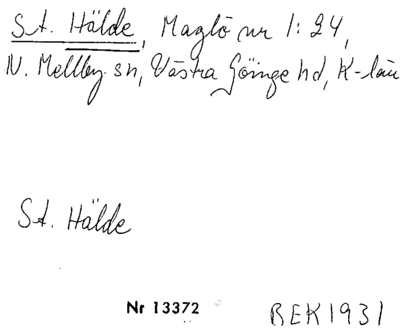 St. Hälde, Maglö nr 1:24,
N. Mellby sn, Västra Göinge hd, K-län
St. Hälde
Nr 13372 BEK1931